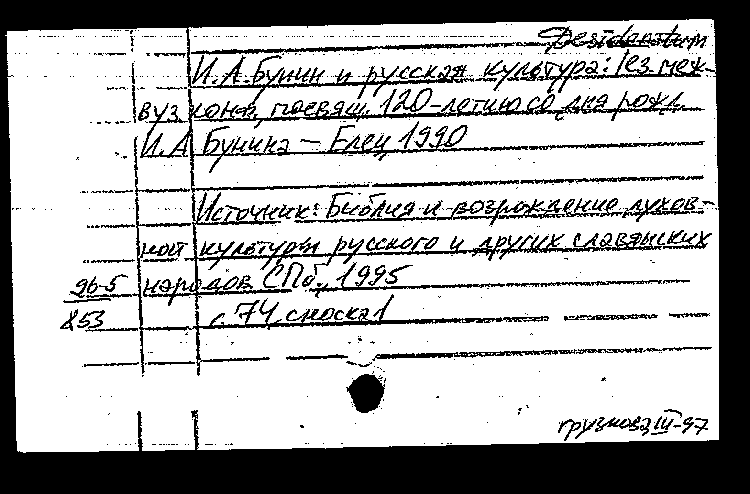 Desideratum
И.А.Бунин и русская культура: Тез. меж-
вуз. конф., посвящ. 120-летию со дня рожд.
И.А. Бунина — Елец, 1990
Источник: Библия и возрождение духов-
ной культуры русского и других славянских
96-5 народов СПб., 1995
853 с. 74, сноска 1
грузнова III-97